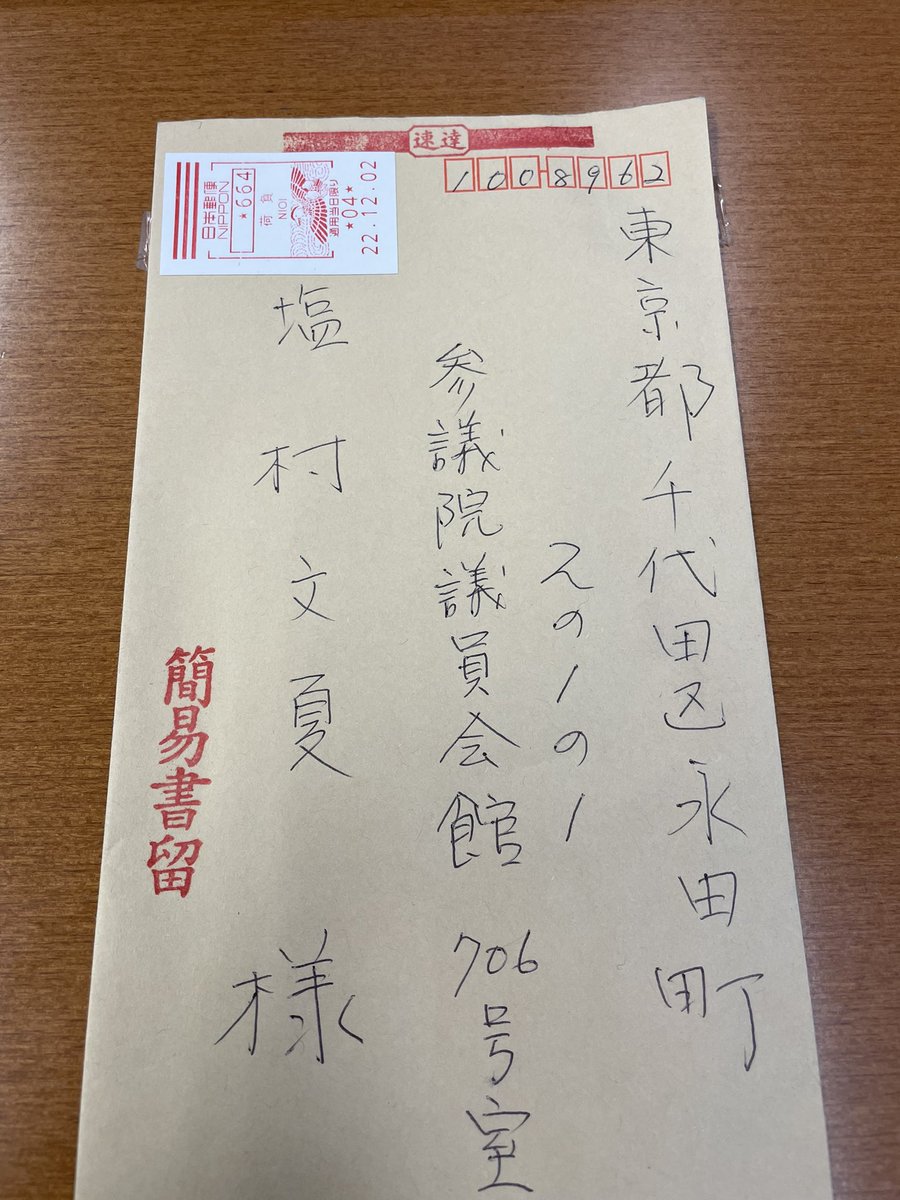 速達
1008962
日本郵便
NIPPON
*664
荷負
N101
通用当日限り
*04*
22.12.02
東京都千代田区永田町
2の1の1
参議院議員会館 706号室
塩村文夏様
簡易書留